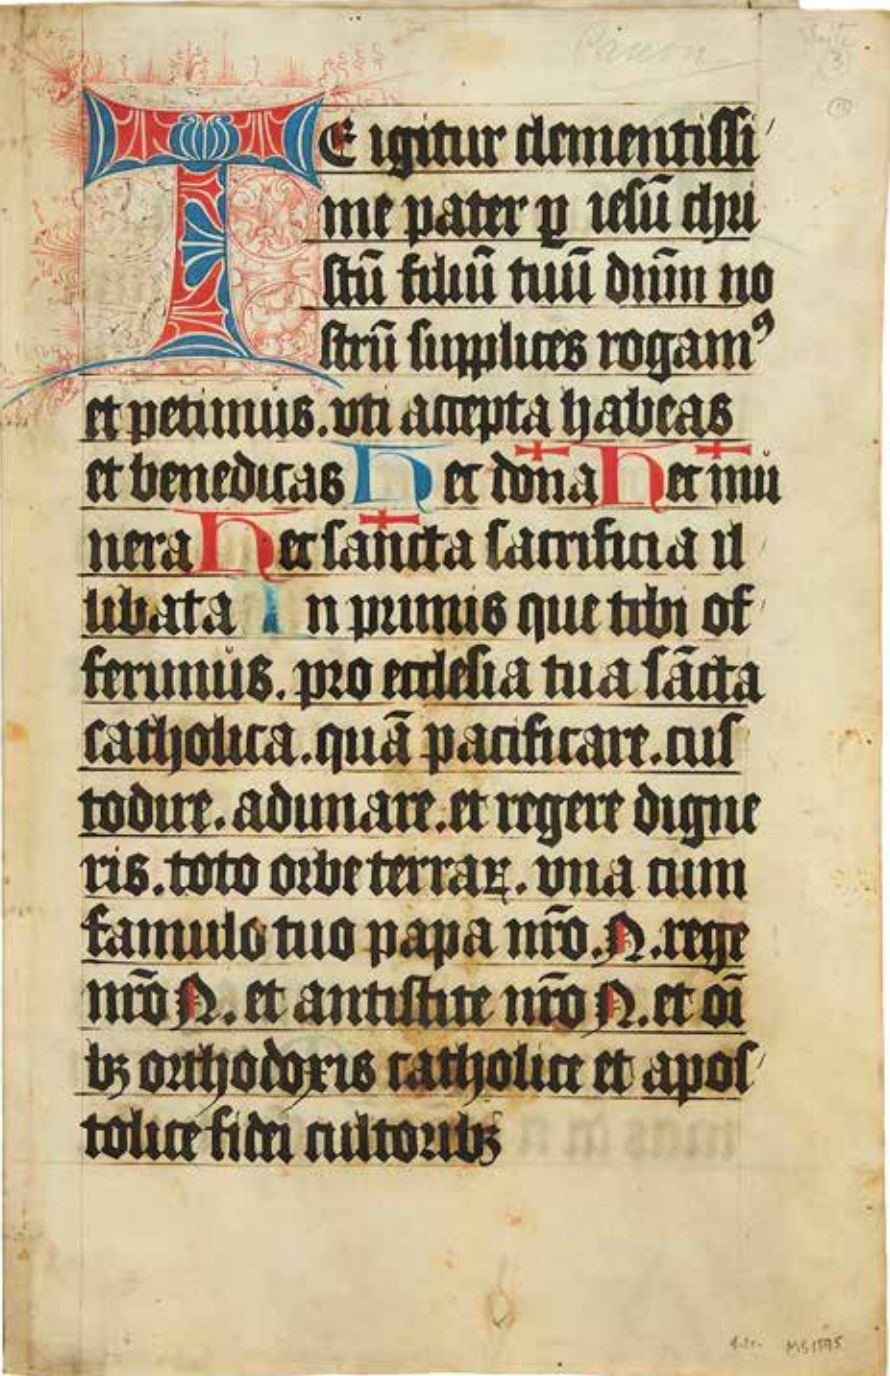 Canon
3
TE igitur clementissi
me pater p̲ iesū chri
stū filiū tuū dnm̄ no
strū supplices rogamꝰ
et petimus. vti accepta habeas
et benedicas Hec do✝na Hec mu✝
nera Hec san✝cta sacrificia il
libata In primis que tibi of
ferimus. pro ecclesia tua sācta
catholica. quā pacificare. cus
todire. adunare. et regere digne
ris. toto orbe terraꝝ. vna cum
famulo tuo papa nr̄o. N. rege
nr̄o N. et antistite nr̄o N. et oī
bꝫ orthodoxis catholice et apos
tolice fidei cultoribꝫ